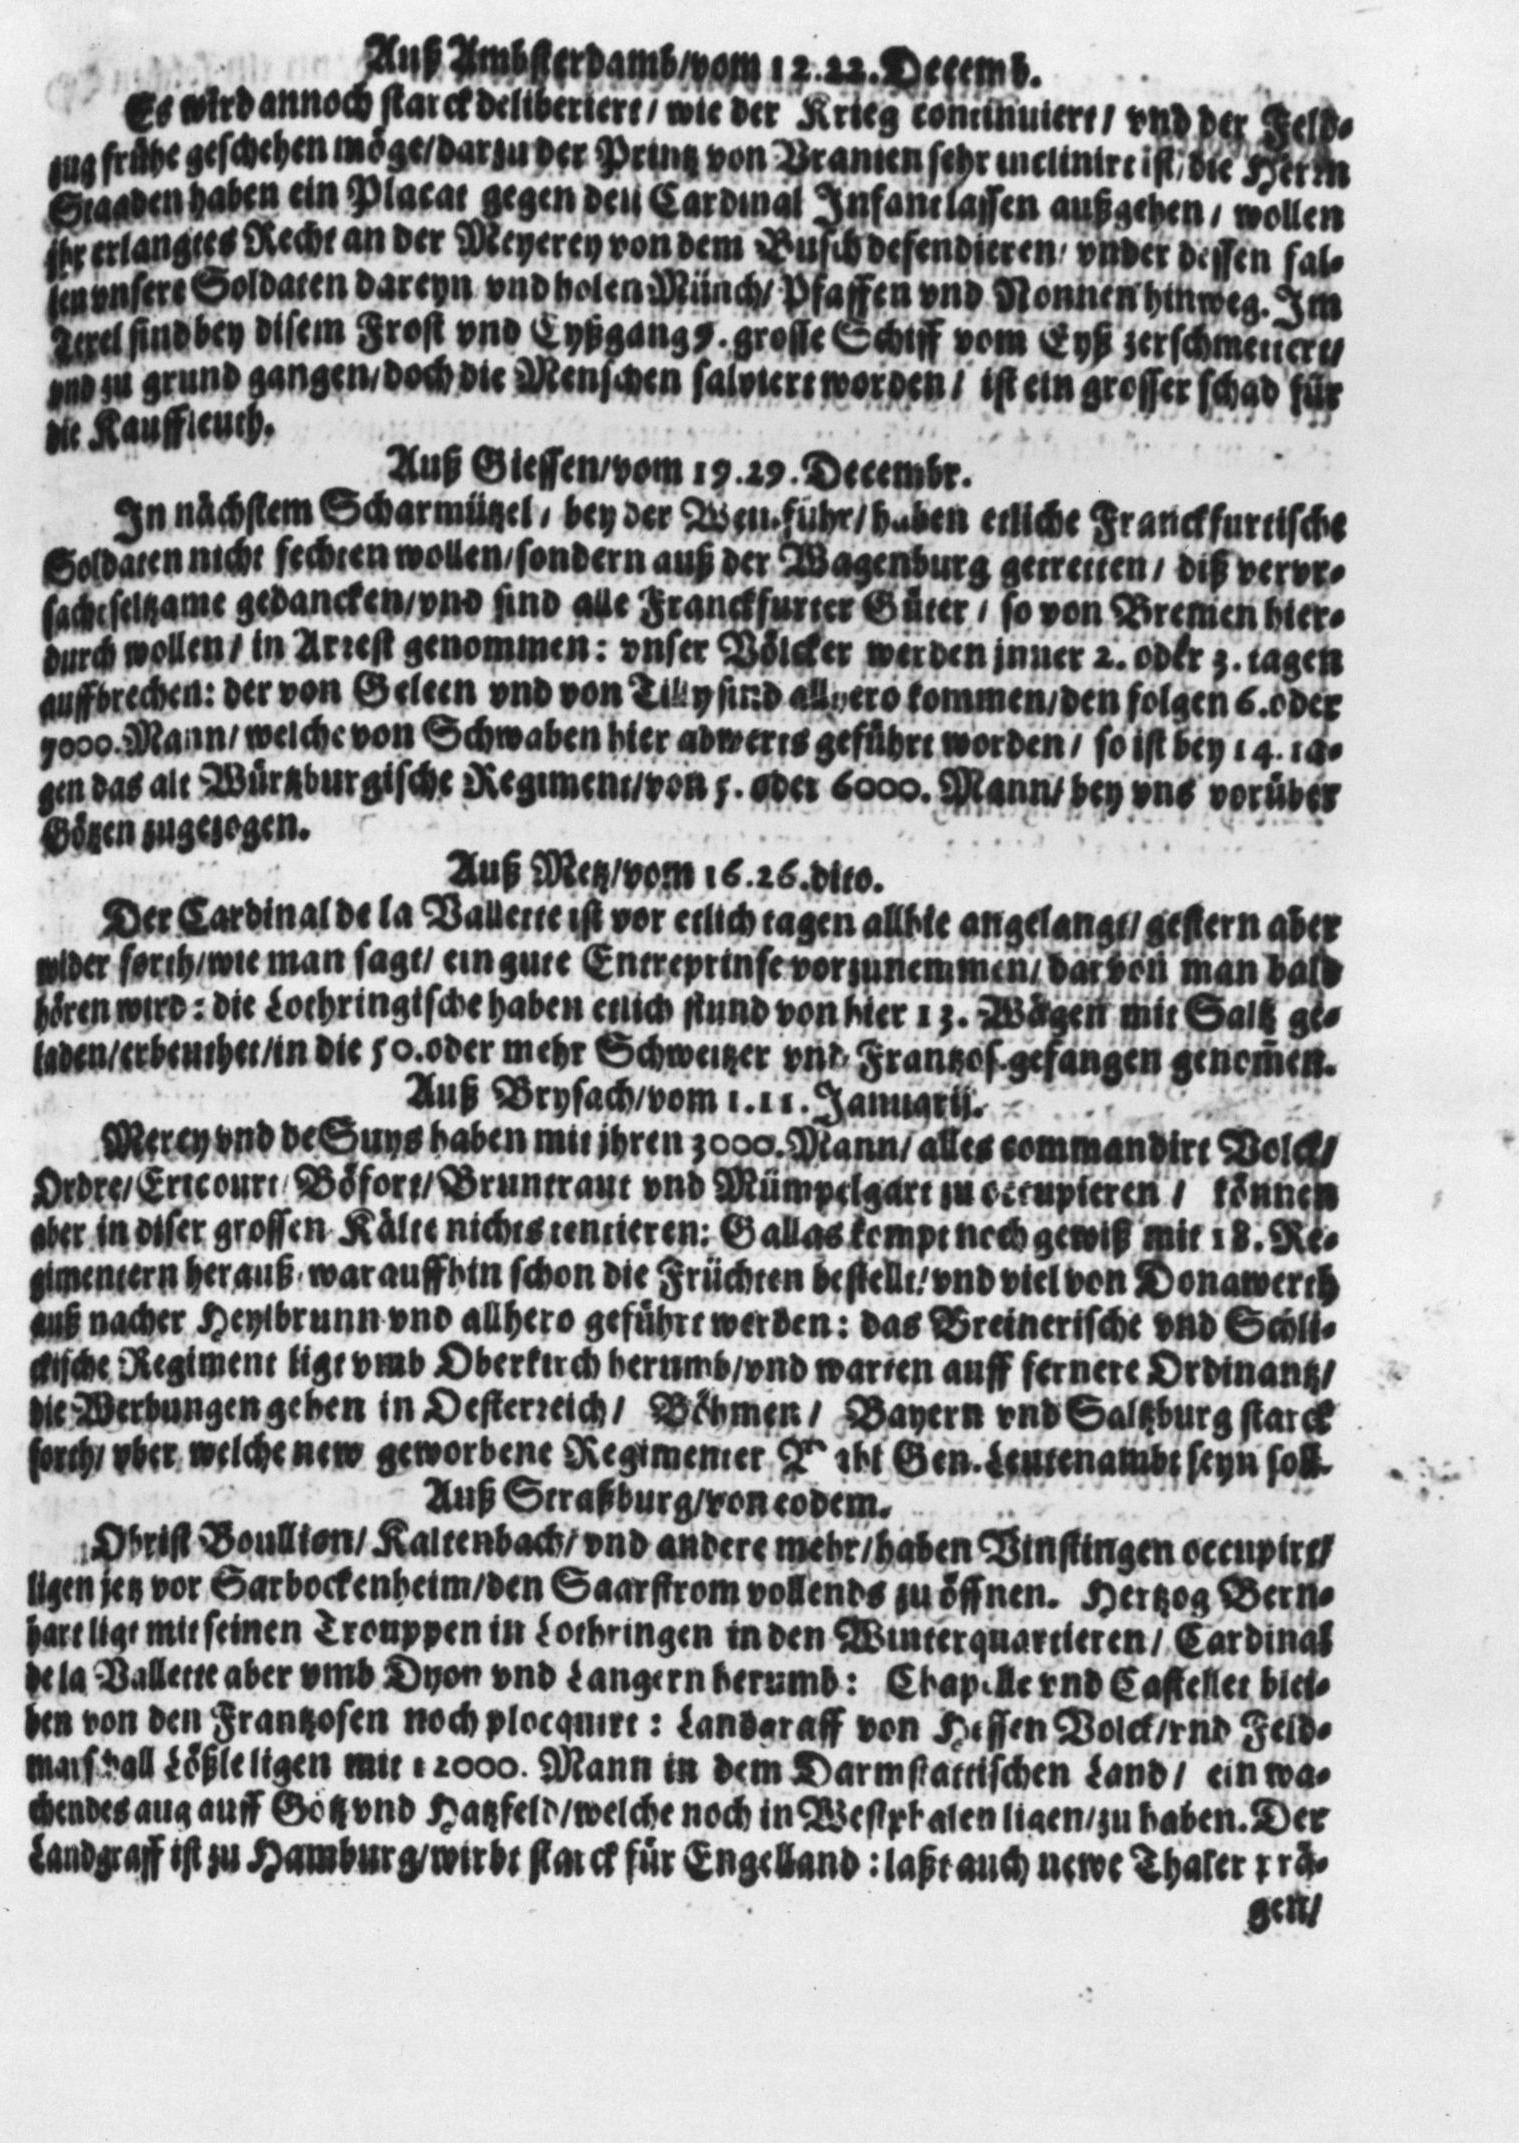 Auß Ambsterdamb/vom 12.22.Decemb.
Es wird annoch starck deliberiert/ wie der Krieg continuiert/ vnd der Feld-
zug frühe geschehen möge/darzu der Printz von Vranien sehr inclinirt ist/die Herrn
Staaden haben ein Placat gegen den Cardinal Infant lassen außgehen/ wollen
jhr erlangtes Recht an der Meyerey von dem Busch defendieren/ vnder dessen fal-
len vnsere Soldaten dareyn vnd holen Münch/ Pfaffen vnd Nonnen hinweg. Im
Texel sind bey disem Frost vnd Eyßgang 9. grosse Schiff vom Eyß zerschmettert/
vnd zu grund gangen/doch die Menschen salviert worden/ ist ein grosser schad für
die Kauffleuth.
Auß Giessen/vom 19.29.Decembr.
In nächstem Scharmützel/ bey der haben etliche Franckfurtische
Soldaten nicht fechten wollen/sondern auß der Wagenburg getretten/ diß vervr-
sacht seltzame gedancken/vnd sind alle Franckfurter Güter/ so von Bremen hier-
durch wollen/ in Arrest genommen: vnser Völcker werden jnner 2. oder 3. tagen
auffbrechen: der von Geleen vnd von Tilly sind allhero kommen/den folgen 6.oder
7000.Mann/ welche von Schwaben hier abwerts geführt worden/ so ist bey 14. ta-
gen das alt Würtzburgische Regiment/von 5. oder 6000. Mann/ bey vns vorüber
Götzen zugezogen.
Auß Metz/vom 16.26.dito.
Der Cardinal de la Vallette ist vor etlich tagen allhie angelangt/ gestern aber
wider forth/wie man sagt/ ein gute Entreprinse vorzunemmen/ darvon man bald
hören wird: die Lothringische haben etlich stund von hier 13. Wägen mit Saltz ge-
laden/erbeuthet/in die 50.oder mehr Schweitzer vnd Frantzos.gefangen genom̃en.
Auß Brysach/vom 1.11. Januarij.
Mercy vnd de Suys haben mit jhren 3000.Mann/ alles commandirt Volck/
Ordre/ Ertcourt/ Böfort/ Bruntraut vnd Mümpelgart zu occupieren/ können
aber in diser grossen Kälte nichts tentieren: Gallas kompt noch gewiß mit 18. Re-
gimentern herauß/ warauffhin schon die Früchten bestellt/ vnd viel von Donawerth
auß nacher Heylbrunn vnd allhero geführt werden: das Breinerische vnd Schli-
ckische Regiment ligt vmb Oberkirch herumb/vnd warten auff fernere Ordinantz/
die Werbungen gehen in Oesterreich/ Böhmen/ Bayern vnd Saltzburg starck
forth/ vber welche new geworbene Regimenter Gen.Leutenambt seyn soll.
Auß Straßburg/von eodem.
Obrist Boullion/ Kaltenbach/ vnd andere mehr/haben Vinstingen occupirt/
ligen jetz vor Sarbockenheim/den Saarstrom vollends zu öffnen. Hertzog Bern-
hart ligt mit seinen Trouppen in Lothringen in den Winterquartieren/ Cardinal
de la Vallette aber vmb Dyon vnd Langern herumb: Chapelle vnd Castellet blei-
ben von den Frantzosen noch plocquirt: Landgraff von Hessen Volck/vnd Feld-
marschall Lößle ligen mit 12000. Mann in dem Darmstattischen Land/ ein wa-
chendes aug auff Götz vnd Hatzfeld/welche noch in Westphalen ligen/zu haben. Der
Landgraff ist zu Hamburg/wirbt starck für Engelland: laßt auch newe Thaler prä-
gen/